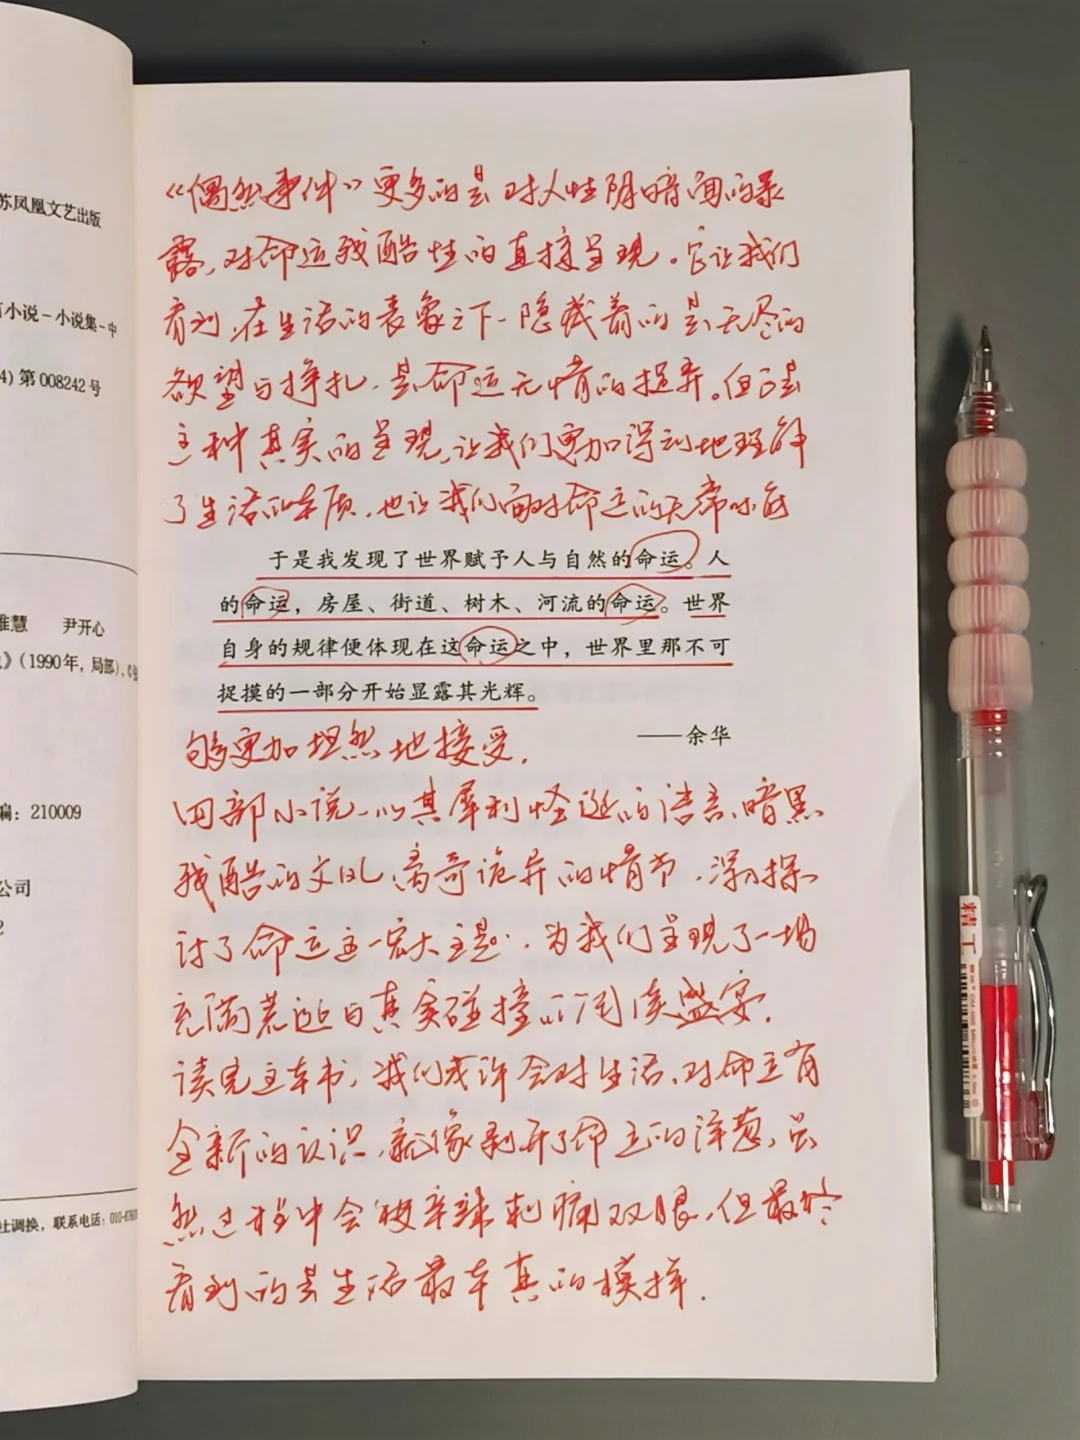 苏凤凰文艺出版
小说-小说集-中
4)第008242号
维慧 尹开心
》(1990年,局部),
编:210009
公司
2
社调换,联系电话:010-
《偶然事件》更多的是对人性阴暗面的暴
露,对命运残酷性的直接呈现。它让我们
看到,在生活的表象之下,隐藏着的是无尽的
欲望与挣扎,是命运无情的捉弄。但正是
这种真实的呈现,让我们更加深刻地理解
了生活的本质,也让我们面对命运的无常时能
于是我发现了世界赋予人与自然的命运。人
的命运,房屋、街道、树木、河流的命运。世界
自身的规律便体现在这命运之中,世界里那不可
捉摸的一部分开始显露其光辉。
——余华
够更加坦然地接受。
四部小说,以其犀利怪诞的语言、暗黑
残酷的文风、离奇诡异的情节,深入探
讨了命运这一宏大主题,为我们呈现了一场
充满荒诞与真实碰撞的阅读盛宴。
读完这本书,我们或许会对生活、对命运有
全新的认识,就像剥开了命运的洋葱,虽
然过程中会被辛辣刺痛双眼,但最终
看到的是生活最本真的模样。
精工